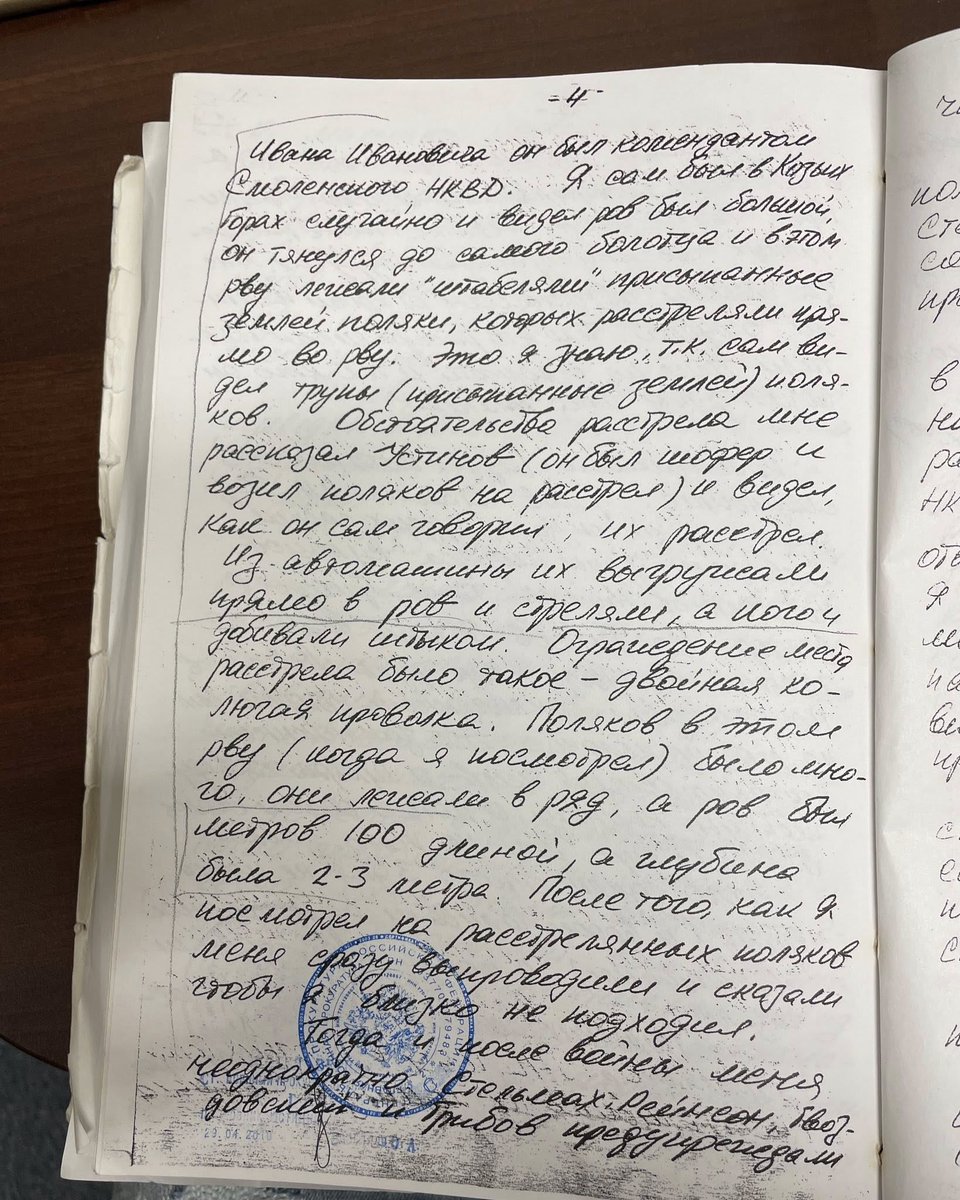 - 4 -
Ивана Ивановича он был комендантом
Смоленского НКВД. Я сам был в Козьих
Горах случайно и видел ров был большой,
он тянулся до самого болотца и в этом
рву лежали "штабелями" присыпанные
землей поляки, которых расстреляли пря-
мо во рву. Это я знаю, т.к. сам ви-
дел трупы (присыпанные землей) поля-
ков. Обстоятельства расстрела мне
рассказал Устинов (он был шофер и
возил поляков на расстрел) и видел,
как он сам говорил, их расстрел.
Из автомашины их выгружали
прямо в ров и стреляли, а кого и
добивали штыком. Ограждение места
расстрела было такое – двойная ко-
лючая проволка. Поляков в этом
рву (когда я посмотрел) было мно-
го, они лежали в ряд, а ров был
метров 100 длиной, а глубина
была 2-3 метра. После того, как я
посмотрел на расстрелянных поляков
меня сразу выпроводили и сказали
чтобы я близко не подходил.
Тогда и после войны меня
неоднократно Стельмах, Рейнсон, Гвоз-
довский и Грибов предупреждали
29.04.2010